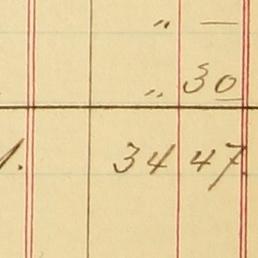 " —
" 30
1. 34 47.